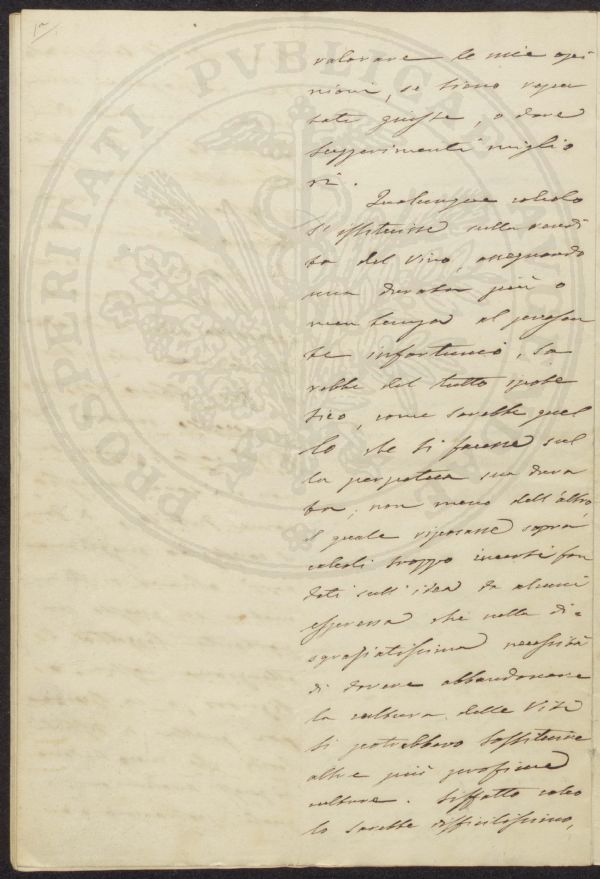 1a
valorare le mie opi
nioni, se siano repu
tate giuste, o dare
suggerimenti miglio
ri.
Qualunque calcolo
s'istituisse sulla vendi
ta del Vino, assegnando
una durata più o
men lunga al presen
te infortunio, sa
rebbe del tutto ipote
tico, come sarebbe quel
lo che si facesse sul
la perpetua sua dura
ta; non meno dell'altro,
il quale riposasse sopra
calcoli troppo incerti fon
dati sull'idea da alcuni
espressa che nella di=
sgraziatissima necessità
di dovere abbandonare
la cultura delle Viti
si potrebbero sostituire
altre più proficue
culture. Siffatto calco
lo sarebbe difficilissimo,
PROSPERITATI PVBLICAE